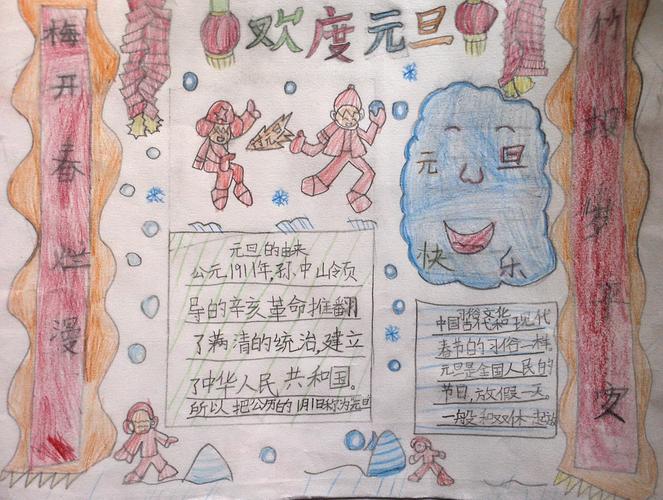 欢度元旦
梅开春烂漫
元旦
快乐
元旦的由来
公元1911年,孙中山领
导的辛亥革命推翻
了满清的统治,建立
了中华人民共和国。
所以把公历的1月1日称为元旦
习俗文化
中国古代和现代
春节的习俗一样
元旦是全国人民的
节日,放假一天。
一般和双休起放
竹报岁平安